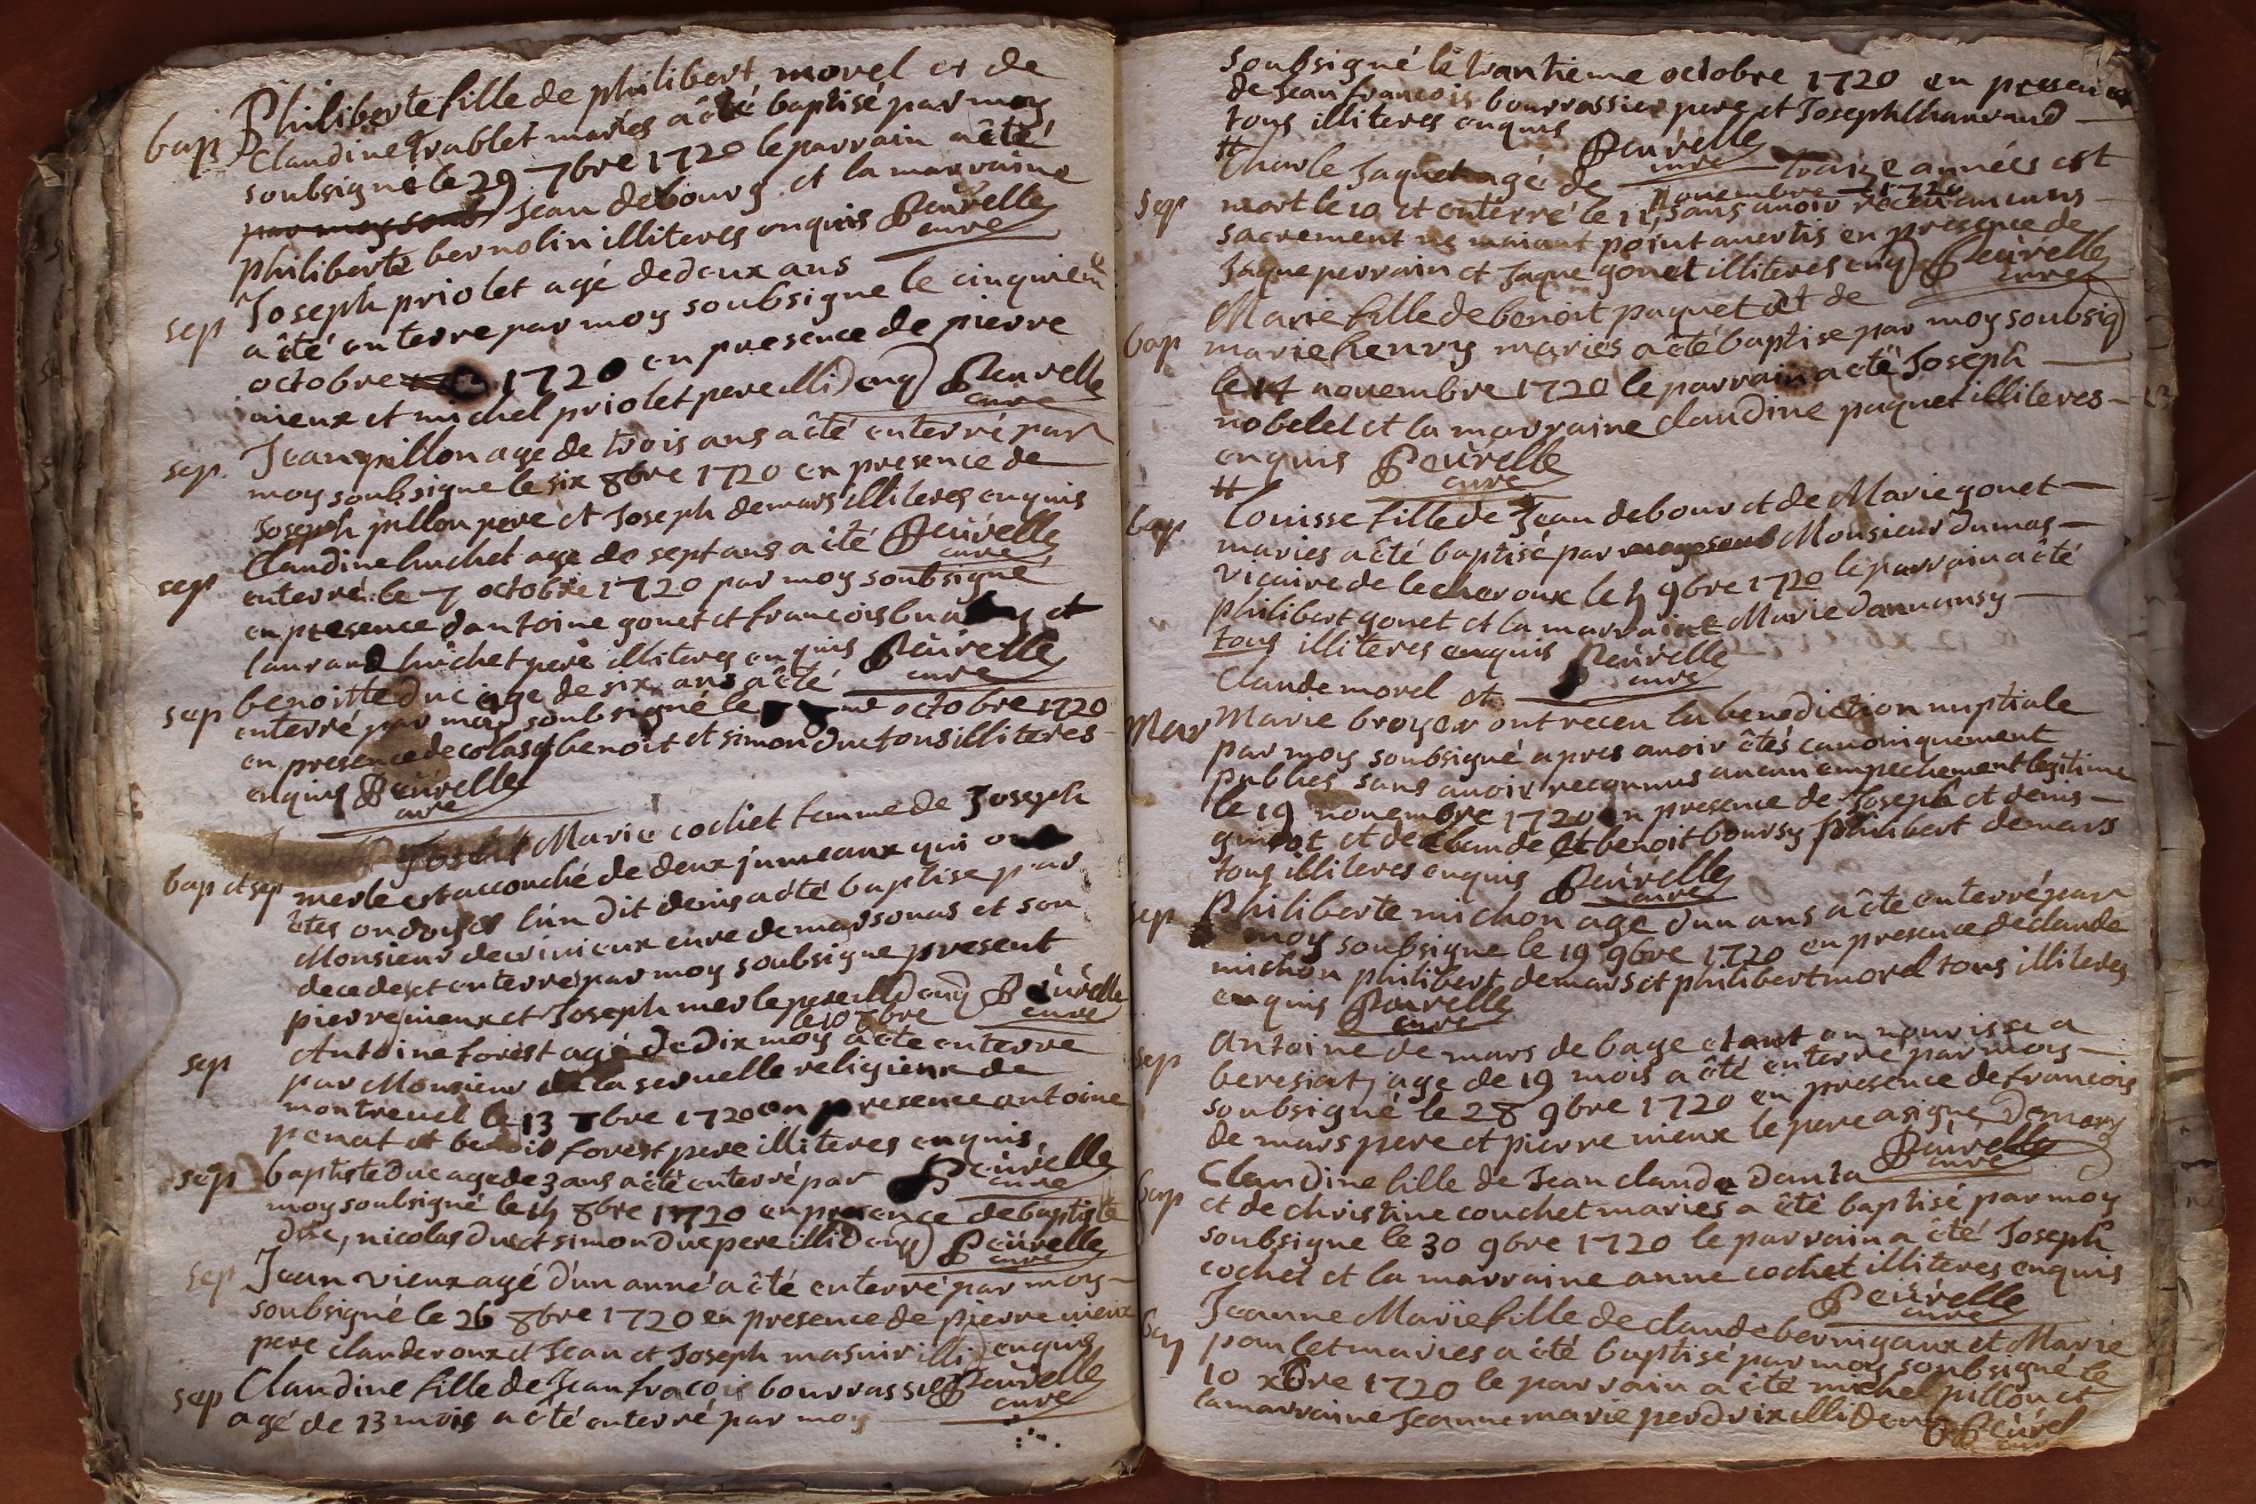 bap Philiberte fille de philibert morel et de
Claudine trablet maries a êté baptisé par moy
soubsigné le 29 7bre 1720 le parrain a êté
par moy soub Jean debourg et la marraine
philiberte bernolin illiteres enquis Beurelle
cure
sep Joseph priolet agé de deux ans
a êté enterre par moy soubsigne le cinquieme
octobre 1720 en presence de pierre
vieux et michel priolet pere illi) enq) Beurelle
cure
sep. Jean pillon age de trois ans a êté enterré par
moy soubsigne le six 8bre 1720 en presence de
Joseph pillon pere et Joseph demars illiteres enquis
Beurelle
cure
sep Claudine huchet age de sept ans a êté
enterré le 7 octobre 1720 par moy soubsigné
en presence dantoine gonet et francois et
laurand huchet pere illiteres enquis Beurelle
cure
sep benoitte duc age de six ans a êté
enterré par moy soubsigné le octobre 1720
en presence de colas benoit et simon duc tous illiteres
enquis Beurelle
cure
Marie cochet femme de Joseph
bap et sep merle est accouché de deux jumeaux qui ont
êtes ondoyes lún dit denis a êté baptise par
Monsieur curé de marsonas et son
decedes et enterré par moy soubsigne present
pierre vieux et Joseph merle pere illi) enq) Beurelle
cure
le 10 8bre
sep Antoine forest agé de dix moy a êté enterre
par Monsieur de la seruelle religieux de
montreuel le 13 8bre 1720 en presence antoine
penat et benoit forest pere illiteres enquis
Beurelle
cure
sep baptiste duc age de 3 ans a êté enterré par
moy soubsigné le 14 8bre 1720 en presence de baptiste
duc, nicolas duc et simon duc pere illi) enq) Beurelle
cure
sep Jean vieux agé d'un anné a êté enterré par moy
soubsigné le 26 8bre 1720 en presence de pierre vieux
pere claude roux et Jean et Joseph masuir illi) enquis
Beurelle
cure
sep Claudine fille de Jean fracois bourrassier
agé de 13 mois a êté enterré par moy
soubsigné le trantieme octobre 1720 en presence
de Jean francois bourrassier pere et Joseph chanrand
tous illiteres enquis Beurelle
cure
sep Charle Jaquet agé de traize années est
nouembre 1720
mort le 10 et enterré le 11, sans auoir receu aucuns
sacrement ne maiant point auertis en presence de
Jaque perrain et Jaque gonet illiteres enq) Beurelle
cure
bap Marie fille de benoit paquet et de
marie henry maries a êté baptise par moy soubsig)
le 14 nouembre 1720 le parrain a êté Joseph
nobelet et la marraine claudine paquet illiteres
enquis Beurelle
cure
bap Louisse fille de Jean debour et de Marie gonet
maries a êté baptisé par moy soub Monsieur dumas
vicaire de lecheroux le 4 9bre 1720 le parrain a êté
philibert gonet et la marraine Marie danuansy
tous illiteres enquis Beurelle
cure
Claude morel et
Mar Marie broyer ont receu la benediction nuptiale
par moy soubsigné apres auoir êtés canoniquement
publies sans auoir reconnus aucun empechement legitime
le 19 nouembre 1720 en presence de Joseph et denis
guirot et de claude et benoit boursy philibert demars
tous illiteres enquis Beurelle
cure
sep Philiberte michon age d'un ans a êté enterré par
moy soubsigne le 19 9bre 1720 en presence de claude
michon philibert demars et philibert morel tous illiteres
enquis Beurelle
cure
sep Antoine de mars de bage etant en nourisse a
beresiat, age de 19 mois a êté enterré par moy
soubsigné le 28 9bre 1720 en presence de francois
de mars pere et pierre vieux le pere a signe Demars
Beurelle
cure
bap Claudine fille de Jean claude danta
et de christine couchet maries a êté baptisé par moy
soubsigne le 30 9bre 1720 le parrain a êté Joseph
cochet et la marraine anne cochet illiteres enquis
Beurelle
cure
bap Jeanne Marie fille de claude bernigaux et Marie
poncet maries a êté baptisé par moy soubsigné le
10 xbre 1720 le parrain a êté michel pillon et
la marraine Jeanne marie perdrix illi) enq Beurel